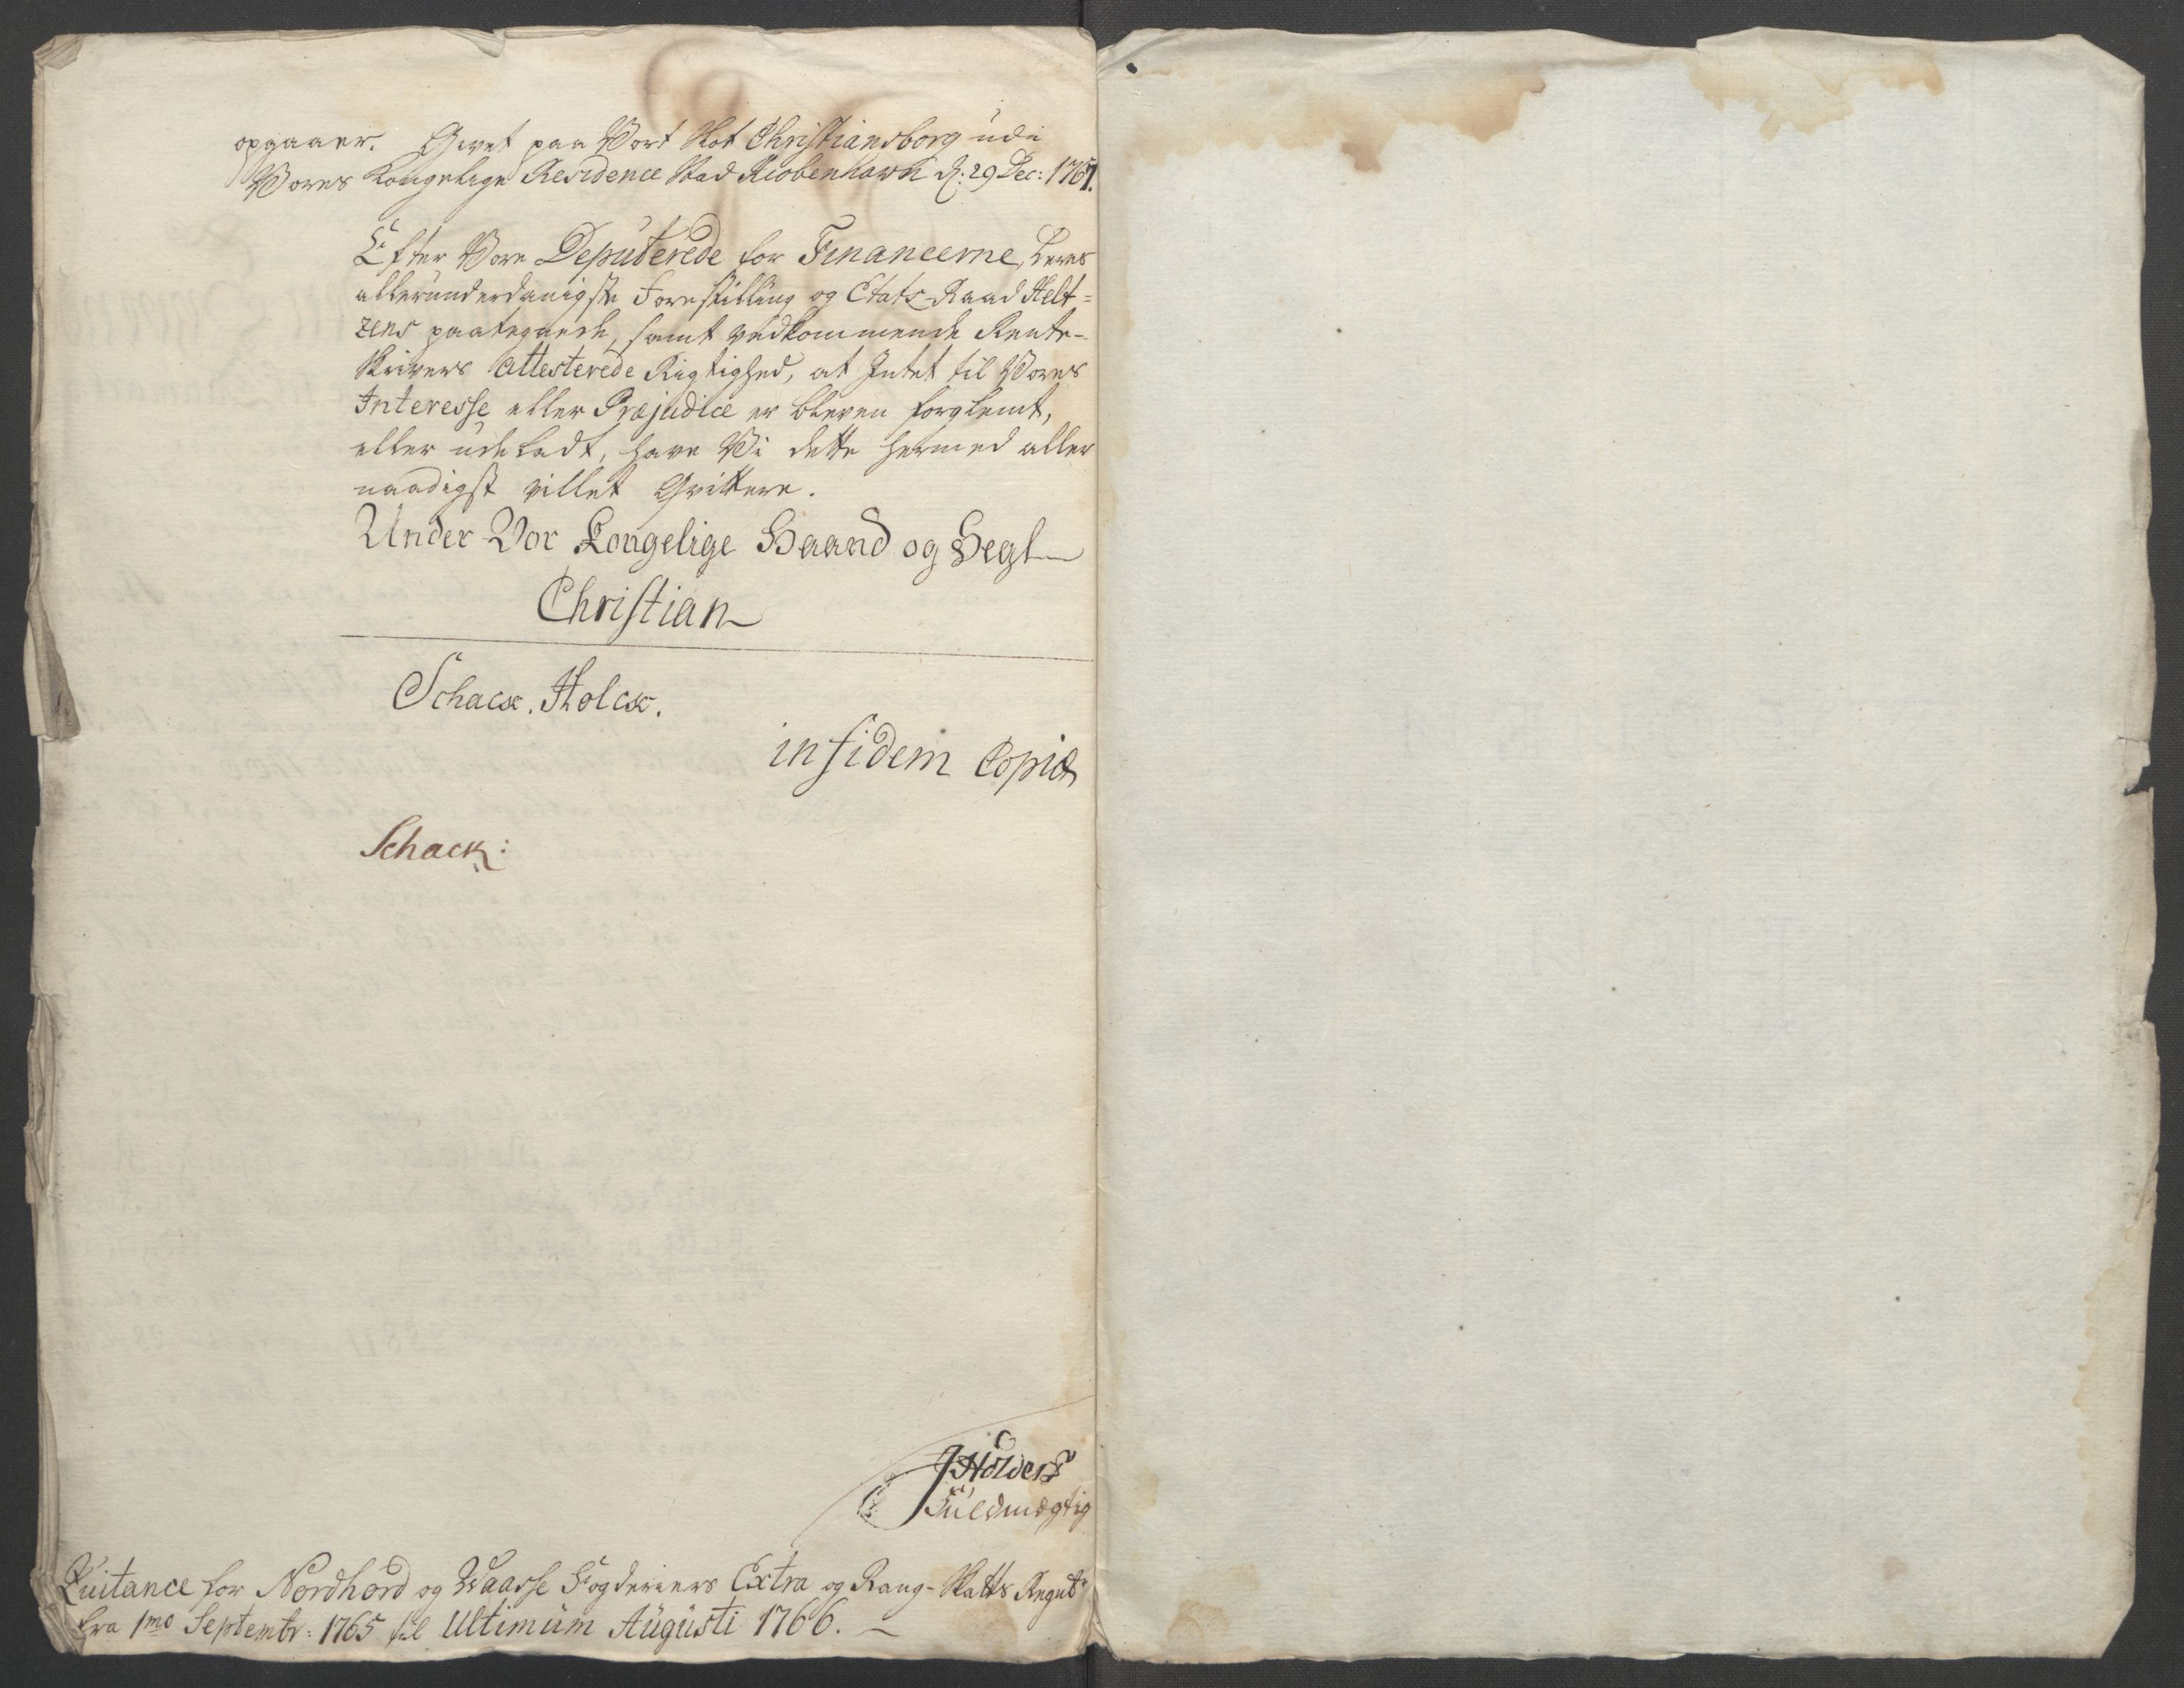 opgaaer. Givet paa Vort Slot Christiansborg udi
Vores Kongelige Residence Stad Kiobenhavn d: 29 Dec: 1767.
Efter Vore Deputerede for Financerne, deres
allerunderdanigste Forestilling og Etats-Raad Helt=
zens paategnede, samt vedkommende Rente-
skrivers attesterede Rigtighed, at Intet til Vores
Interesse eller Præjudice er bleven forglemt,
eller udeladt, have Vi dette hermed aller
naadigst villet Qvittere.
Under Vor Kongelige Haand og Segl
Christian
Schack. Holck.
in fidem Copiæ
Schack:
Fuldmægtig
Quitance for Nordhord og Waasse Fogderiers Extra og Rang-Skatts Regnsk:
fra 1mo Septembr: 1765 til Ultimum Augusti 1766.